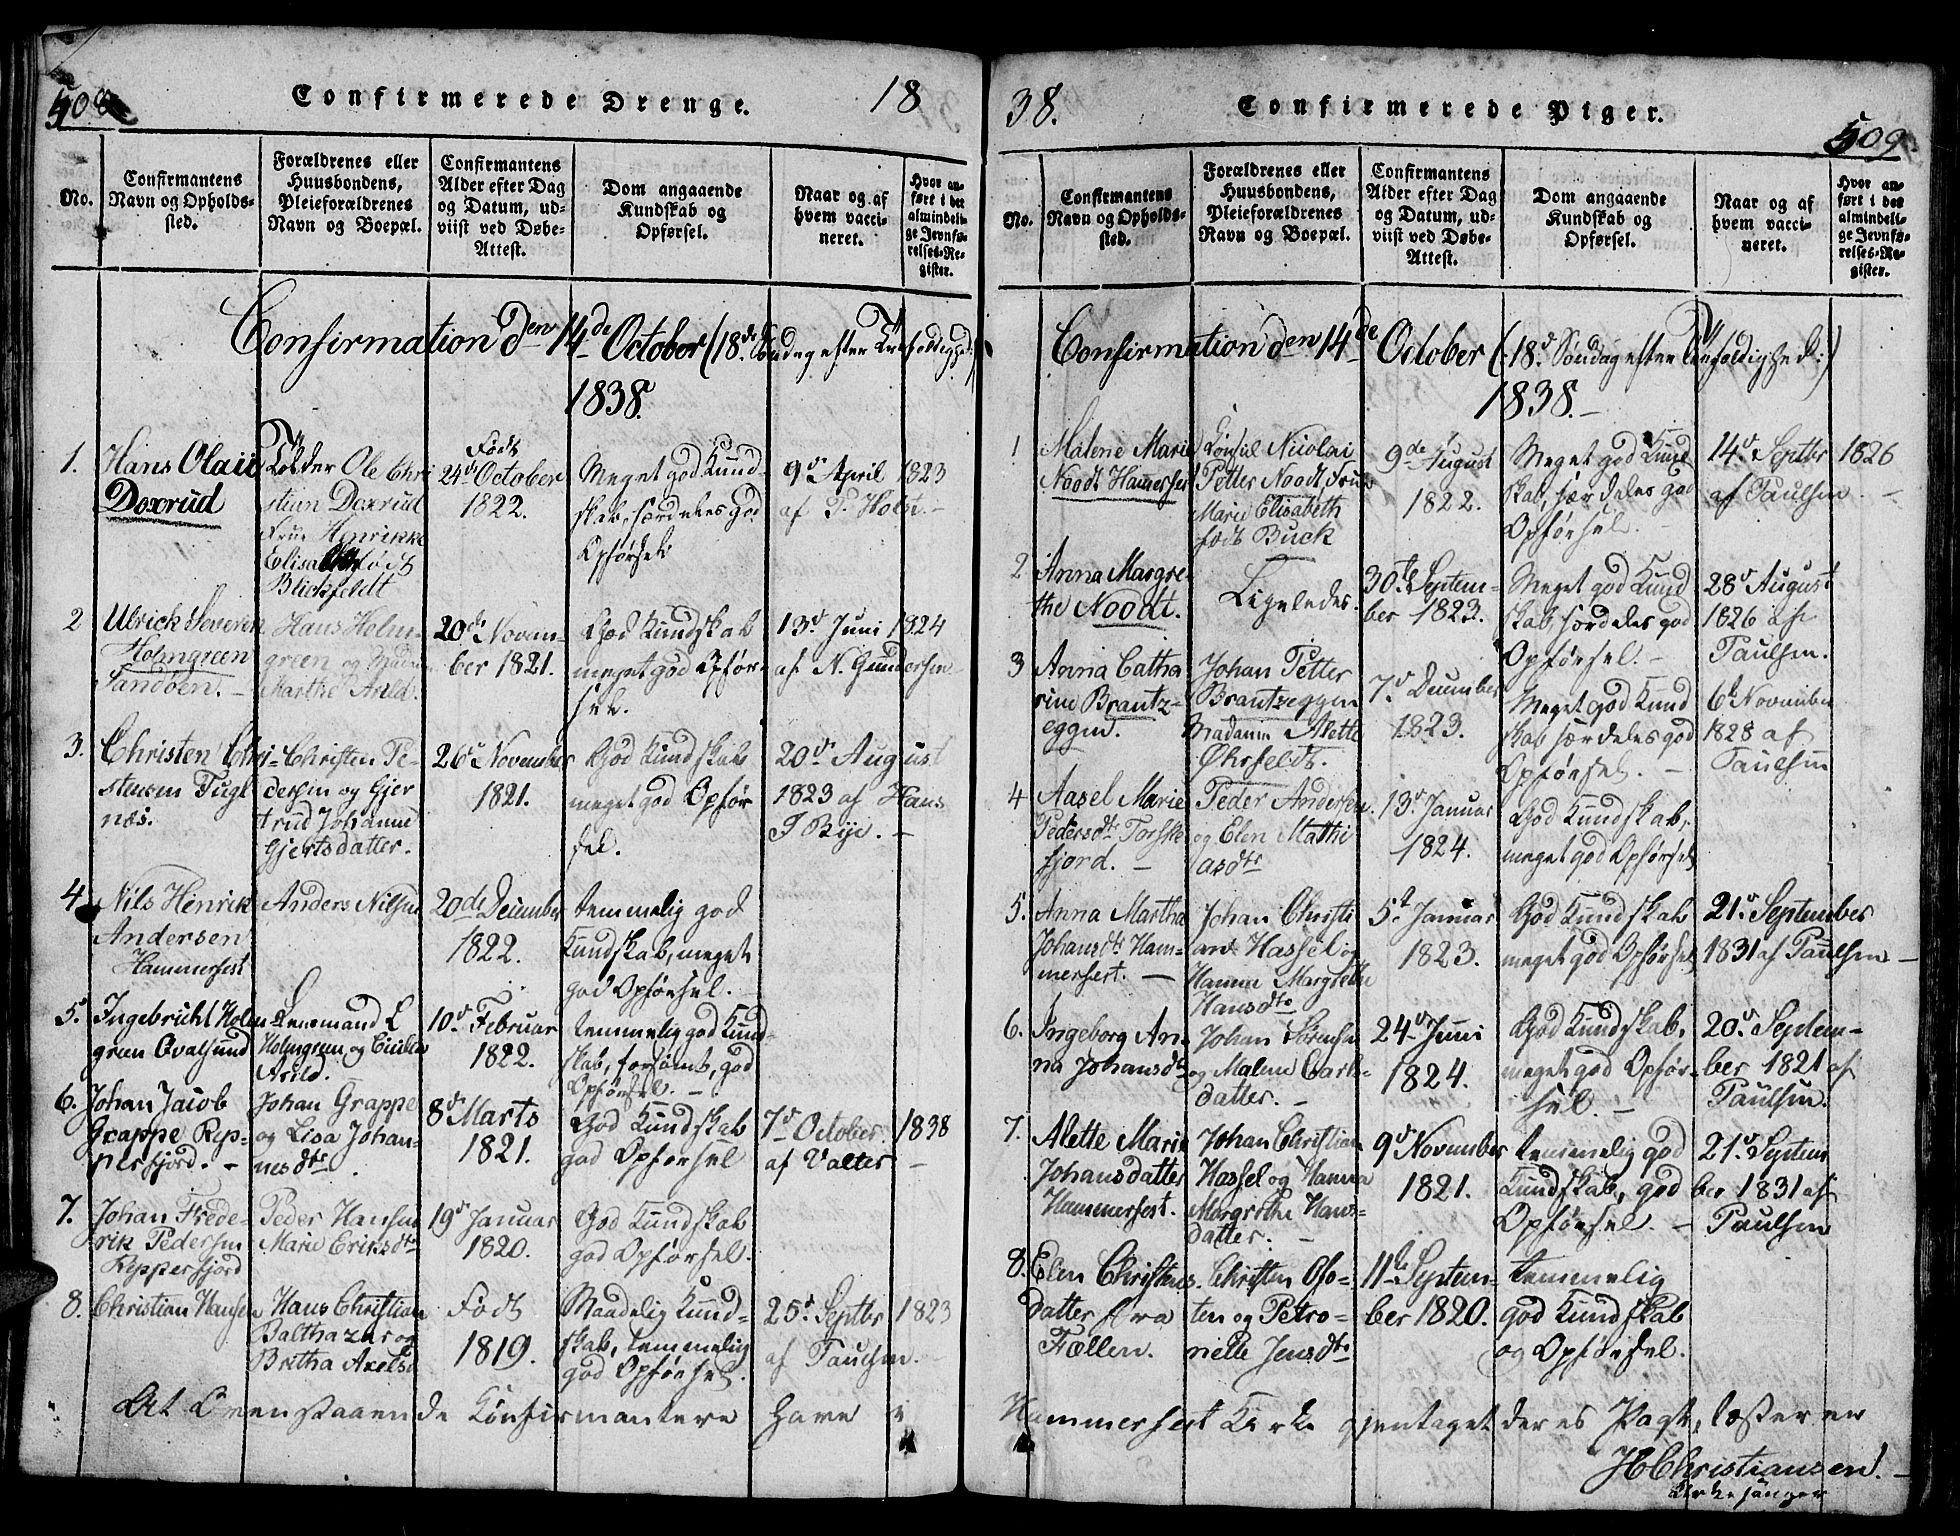 508
Confirmerede Drenge.
18
No.
Confirmantens
Navn og Opholds-
sted.
Forældrenes eller
Huusbondens,
Pleieforældrenes
Navn og Boepæl.
Confirmantens
Alder efter Dag
og Datum, ud-
viist ved Døbe-
Attest.
Dom angaaende
Kundskab og
Opførsel.
Naar og af
hvem vacci-
neret.
Hvor an-
ført i det
almindeli-
ge Jevnfø-
relses-Re-
gister.
Confirmation den 14de October (18de Søndag efter Trefoldighed)
1838.
1.
Hans Olaii
Doxrud
Tolder Ole Chri
stian Doxrud
Frue Henrikke
Elisabeth født
Blickfeldt
Født
24de October
1822.
Meget god Kund-
skab, særdeles god
Opførsel
9d April 1823
af P. Holst.
2
Ulrick Severin
Holmgreen
Sandøen.
Hans Holm-
green og Madm
Marthe Arild.
20de Novem-
ber 1821.
God Kundskab
meget god Opfør-
sel.
13d Juni 1824
af N. Gundersen
3.
Christen Chri-
stensen Fugl
næs.
Christen Pe-
dersen og Gjer
trud Johanne
Gjertsdatter.
26d November
1821.
God Kundskab
meget god Opfør
sel.
20d August
1823 af Hans
J Bye.
4.
Nils Henrik
Andersen
Hammerfest
Anders Nilsen
20de December
1822.
temmelig god
Kundskab, meget
god Opførsel.
5.
Ingebricht Holm
green Qvalsund
Lensmand L
Holmgreen og Cicilia
Arild.
10d Februar
1822.
temmelig god Kund-
skab, forsømt, god
Opførsel.
6.
Johan Jacob
Grappe Rep-
perfjord.
Johan Grappe
og Lisa Johan-
nesdtr
8d Marts
1821.
God Kundskab
god Opførsel
7d October 1838
af Valter
7.
Johan Frede-
rik Pedersen
Repperfjord
Peder Hansen
Marie Eriksdtr
19d Januar
1820.
God Kundskab
god Opførsel.
8.
Christian Hansen
Hans Christian
Balthazar og
Bretha Axelsd
Født
1819.
Maadelig Kund-
skab, temmelig
god Opførsel.
25d Septbr 1823
af Paulsen.
At Ovenstaaende Konfirmantere have i
38.
Confirmerede Piger.
509.
No.
Confirmantens
Navn og Opholds-
sted.
Forældrenes eller
Huusbondens,
Pleieforældrenes
Navn og Boepæl.
Confirmantens
Alder efter Dag
og Datum, ud-
viist ved Døbe-
Attest.
Dom angaaende
Kundskab og
Opførsel.
Naar og af
hvem vacci-
neret.
Hvor an-
ført i det
almindeli-
ge Jevnfø-
relses-Re-
gister.
Confirmation den 14de October (18d Søndag efter Trefoldighed:)
1838.
1
Malene Marie
Noodt Hammerfest
Consul Nicolai
Petter Noodt, Frue
Marie Elisabeth
født Buck
9de August
1822.
Meget god Kund
skab, særdeles god
Opførsel.
14d Septbr 1826
af Paulsen
2
Anna Margre-
the Noodt.
Ligeledes.
30te Septem-
ber 1823.
Meget god Kund
skab særdeles god
Opførsel.
28d August
1826 af
Paulsen.
3
Anna Catha
rine Brantz-
eggen.
Johan Petter
Brantzeggen
Madame Alette
Øhrfeldt.
7d December
1823.
Meget god Kund
skab særdeles god
Opførsel.
6te November
1828 af
Paulsen
4
Aasel Marie
Pedersdtr Torske
fjord.
Peder Andersen
og Elen Mathi
asdtr
13d Januar
1824.
God Kundskab,
meget god Opførsel
5.
Anna Martha
Johansdtr Ham-
merfest.
Johan Christi
an Hassel og
Hanna Margrethe
Hansdtr
5t Januar
1823.
God Kundskab
meget god Opførsel
21d September
1831 af Paulsen
6.
Ingeborg An
na Johansdtr
Johan Sørensen
og Malene Carls-
datter.
24d Juni
1824.
God Kundskab,
meget god Opfør-
sel.
20d Septem-
ber 1821 af
Paulsen.
7.
Alette Marie
Johansdatter
Hammerfest.
Johan Christian
Hassel og Hanna
Margrethe Hans-
datter.
9d November
1821.
temmelig god
Kundskab, god
Opførsel.
21d Septem
ber 1831 af
Paulsen
8.
Elen Christens
datter fra
Fællen.
Christen Ofo-
ten og Petro-
nelle Jensdtr
11te Septem-
ber 1820.
temmelig
god Kundskab
og Opførsel.
Hammerfest Kirke gjentaget deres Pagt, tæster er
H Christiansen.
Kirkesanger